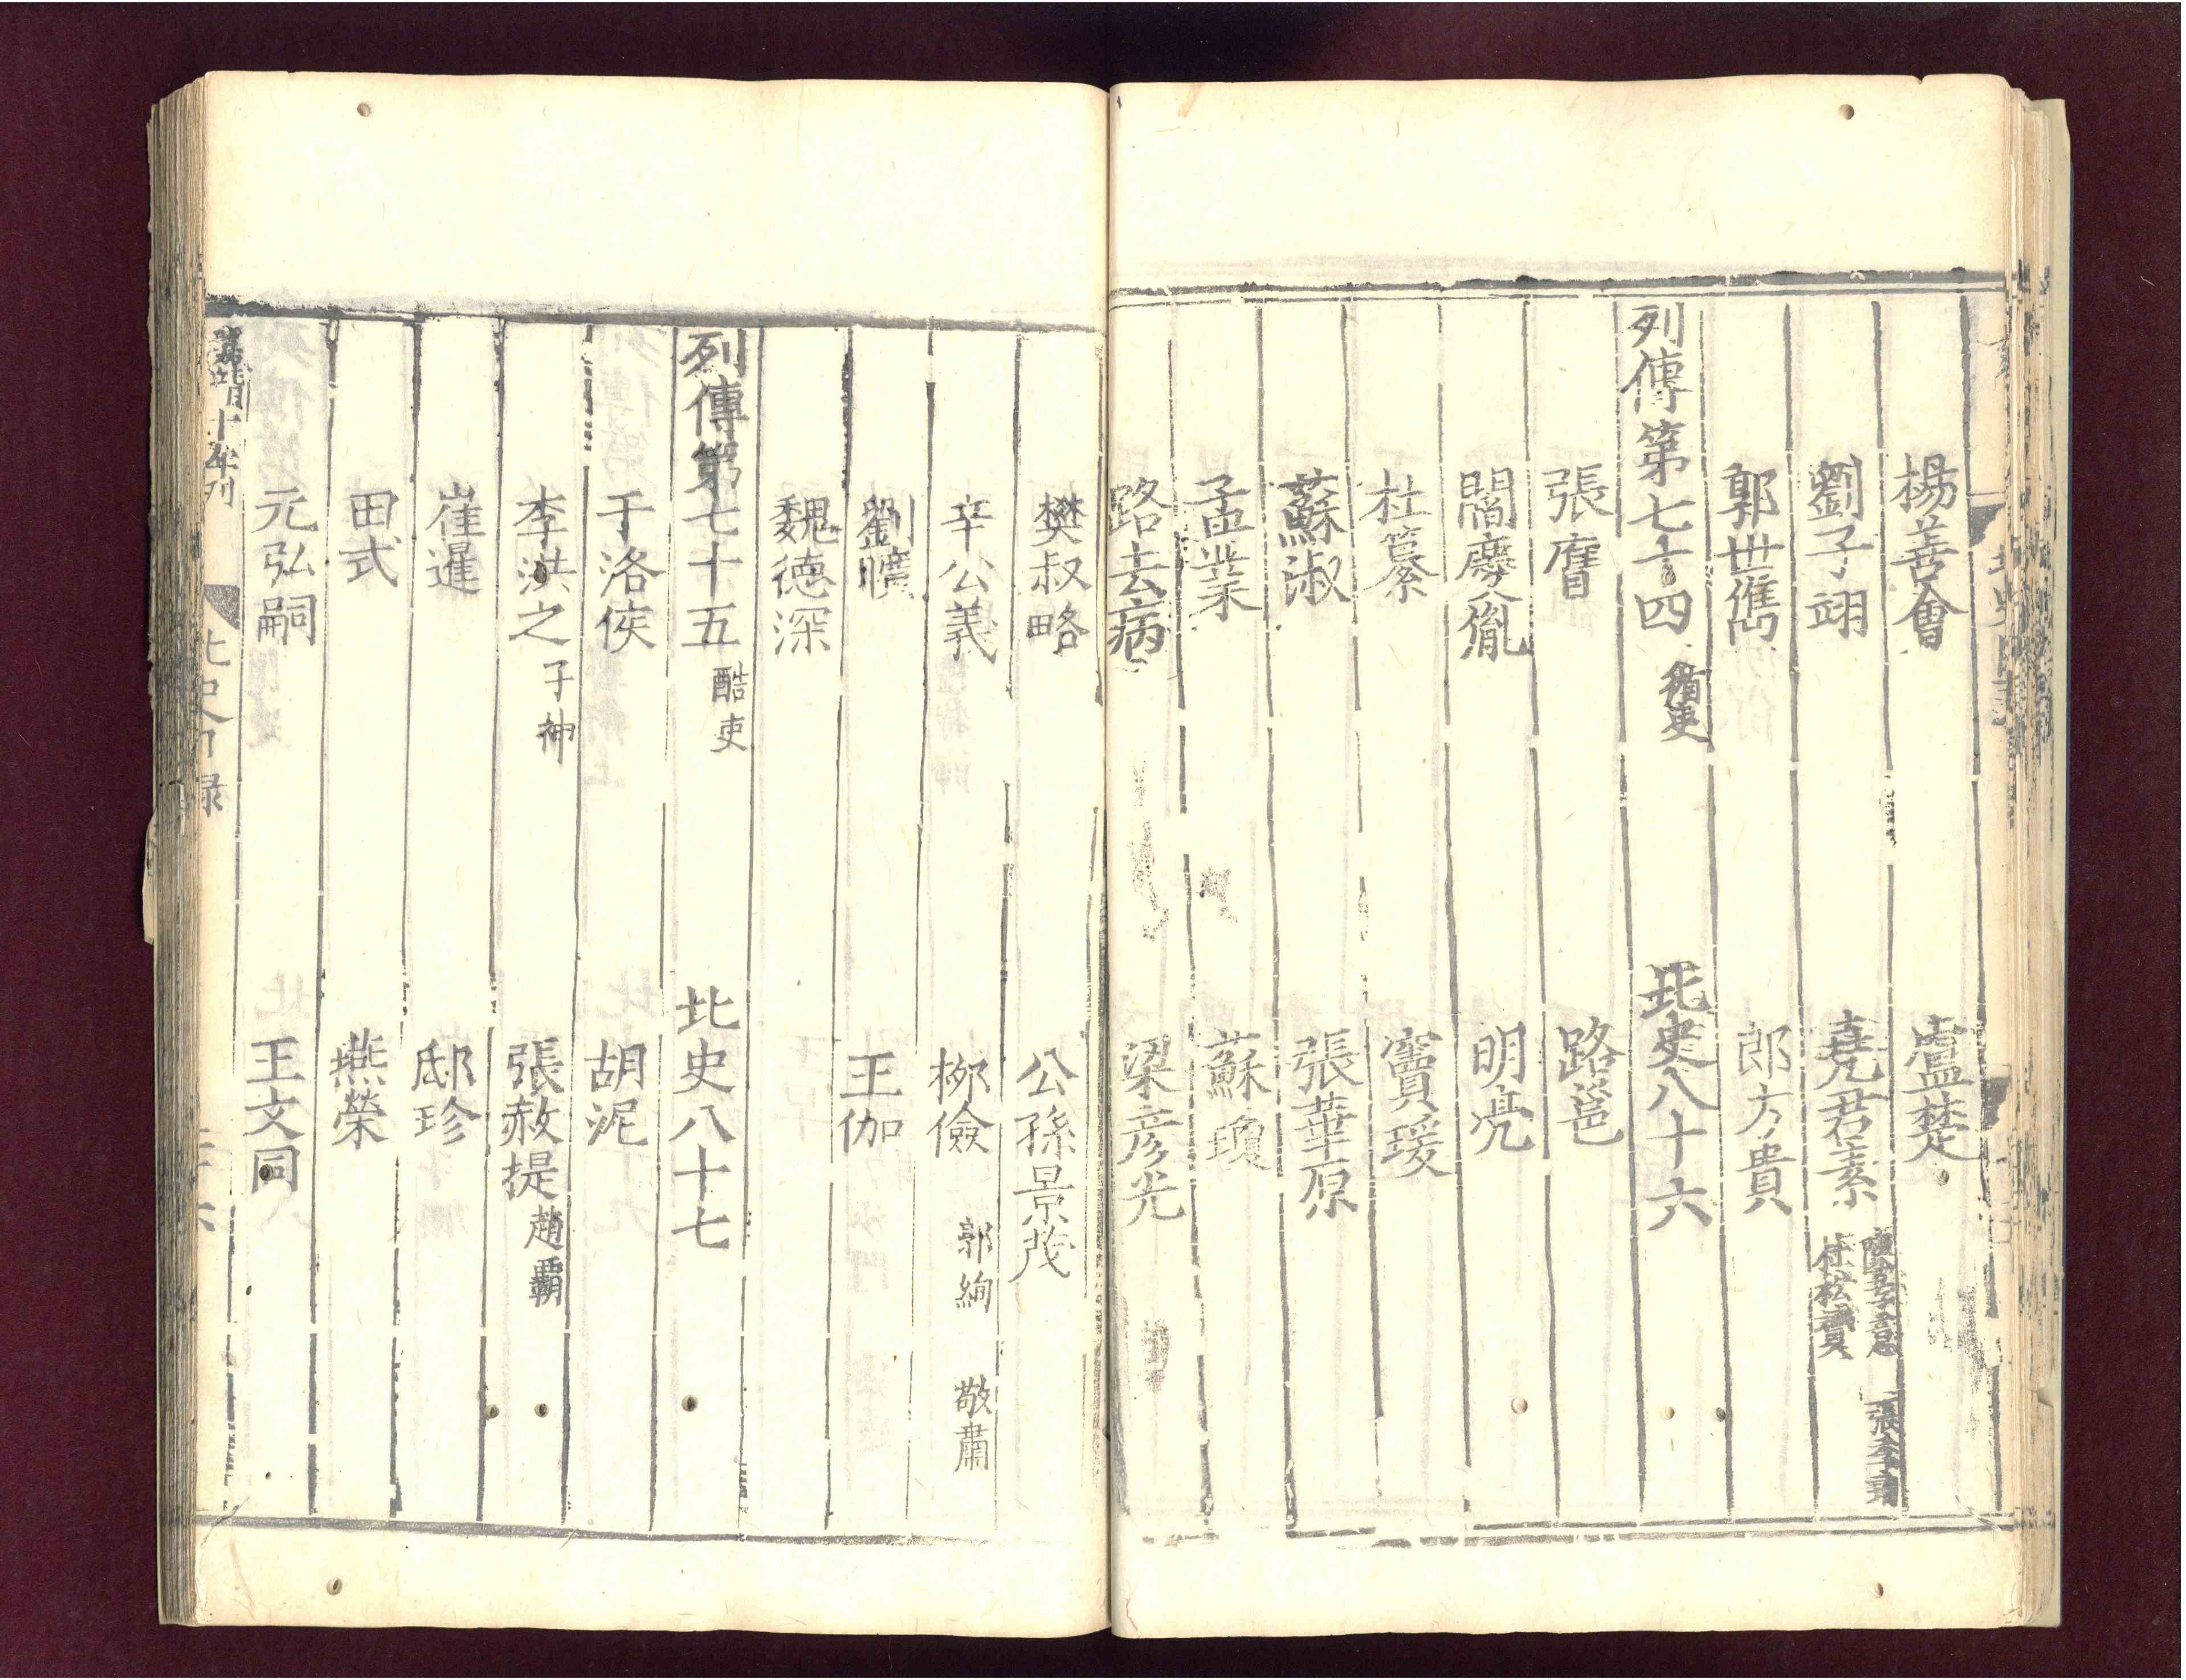 楊善會　盧楚
劉子翊　堯君素　陳孝意　張季珣　杜松贇
郭世儁　郎方貴
列傳第七十四　循吏　北史八十六
張膺　路邕
閻慶胤　明亮
杜纂　竇瑗
蘇淑　張華原
孟業　蘇瓊
路去病　梁彥光
樊叔略　公孫景茂
辛公義　柳儉　郭絢　敬肅
劉曠　王伽
魏德深
列傳第七十五　酷吏　北史八十七
于洛侯　胡泥
李洪之　子神　張赦提　趙霸
崔暹　邸珍
田式　燕榮
元弘嗣　王文同
北史目録